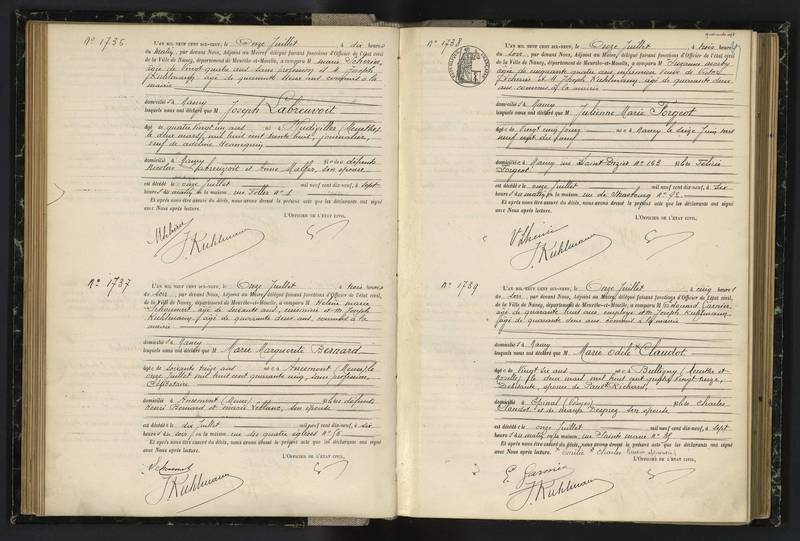 N° 1736
L'AN MIL NEUF CENT DIX-NEUF, le Onze Juillet, à dix heures
du matin, par devant Nous, Adjoint au Maire délégué faisant fonctions d'Officier de l'état civil,
de la Ville de Nancy, département de Meurthe-et-Moselle, a comparu M Marie
âgée de ans sans profession et M Joseph
Kuhlmann, âgé de quarante deux ans commis à la
mairie
domicilié s à Nancy
lesquels nous ont déclaré que M Joseph Labreuvoit
âgé de quatre vingt un ans né à (Meurthe)
le deux mars mil huit cent trente huit, journalier,
veuf de Adeline Hennequin
domicilié à Nancy fils de défunts
Nicolas Labreuvoit et Anne son épouse
est décédé le onze Juillet mil neuf cent dix-neuf, à sept
heures du matin, en la maison rue N° 1
Et après nous être assuré du décès, nous avons dressé le présent acte que les déclarants ont signé
avec Nous après lecture.
L'OFFICIER DE L'ÉTAT CIVIL,
J. Kuhlmann
N° 1737
L'AN MIL NEUF CENT DIX-NEUF, le Onze Juillet, à trois heures
du soir, par devant Nous, Adjoint au Maire délégué faisant fonctions d'Officier de l'état civil,
de la Ville de Nancy, département de Meurthe-et-Moselle, a comparu M Hélène Marie
âgée de soixante ans, et M Joseph
Kuhlmann, âgé de quarante deux ans, commis à la
mairie
domicilié s à Nancy
lesquels nous ont déclaré que M Marie Marguerite Bernard
âgée de soixante treize ans née à Ancemont (Meuse) le
onze Juillet mil huit cent quarante cinq, sans profession,
Célibataire
domiciliée à Ancemont (Meuse) fille de défunts
Henri Bernard et Marie Leblanc, son épouse
est décédée le dix Juillet mil neuf cent dix-neuf, à dix
heures du soir, en la maison rue des quatre églises N°
Et après nous être assuré du décès, nous avons dressé le présent acte que les déclarants ont signé
avec Nous après lecture.
L'OFFICIER DE L'ÉTAT CIVIL,
J. Kuhlmann
N° 1738
L'AN MIL NEUF CENT DIX-NEUF, le Onze Juillet, à trois heures
du soir, par devant Nous, Adjoint au Maire délégué faisant fonctions d'Officier de l'état civil,
de la Ville de Nancy, département de Meurthe-et-Moselle, a comparu M Eugénie
âgée de cinquante quatre ans infirmière Veuve de Victor
et M Joseph Kuhlmann, âgé de quarante deux
ans commis à la mairie
domicilié s à Nancy
lesquels nous ont déclaré que M Julienne Marie Forgeot
âgée de vingt cinq jours née à Nancy le seize Juin mil
neuf cent dix neuf
domiciliée à Nancy rue Saint Dizier N° 153 fille de Félicie
Forgeot
est décédée le onze Juillet mil neuf cent dix-neuf, à dix
heures du matin, en la maison rue de Strasbourg N° 92
Et après nous être assuré du décès, nous avons dressé le présent acte que les déclarants ont signé
avec Nous après lecture.
L'OFFICIER DE L'ÉTAT CIVIL,
J. Kuhlmann
N° 1739
L'AN MIL NEUF CENT DIX-NEUF, le Onze Juillet, à cinq heures
du soir, par devant Nous, Adjoint au Maire délégué faisant fonctions d'Officier de l'état civil,
de la Ville de Nancy, département de Meurthe-et-Moselle, a comparu M Edouard
âgé de quarante huit ans, employé et M Joseph Kuhlmann,
âgé de quarante deux ans commis à la mairie
domicilié s à Nancy
lesquels nous ont déclaré que M Marie Odile Claudot
âgée de vingt six ans née à Bulligny (Meurthe et
Moselle) le deux mars mil huit cent quatre vingt treize,
épouse de Paul Richard,
domiciliée à Épinal (Vosges) fille de Charles
Claudot et de Marie Desprez son épouse
est décédée le onze Juillet mil neuf cent dix-neuf, à sept
heures du matin, en la maison rue Sainte Marie N° 35
Et après nous être assuré du décès, nous avons dressé le présent acte que les déclarants ont signé
avec Nous après lecture. Emilie Charles
L'OFFICIER DE L'ÉTAT CIVIL,
J. Kuhlmann